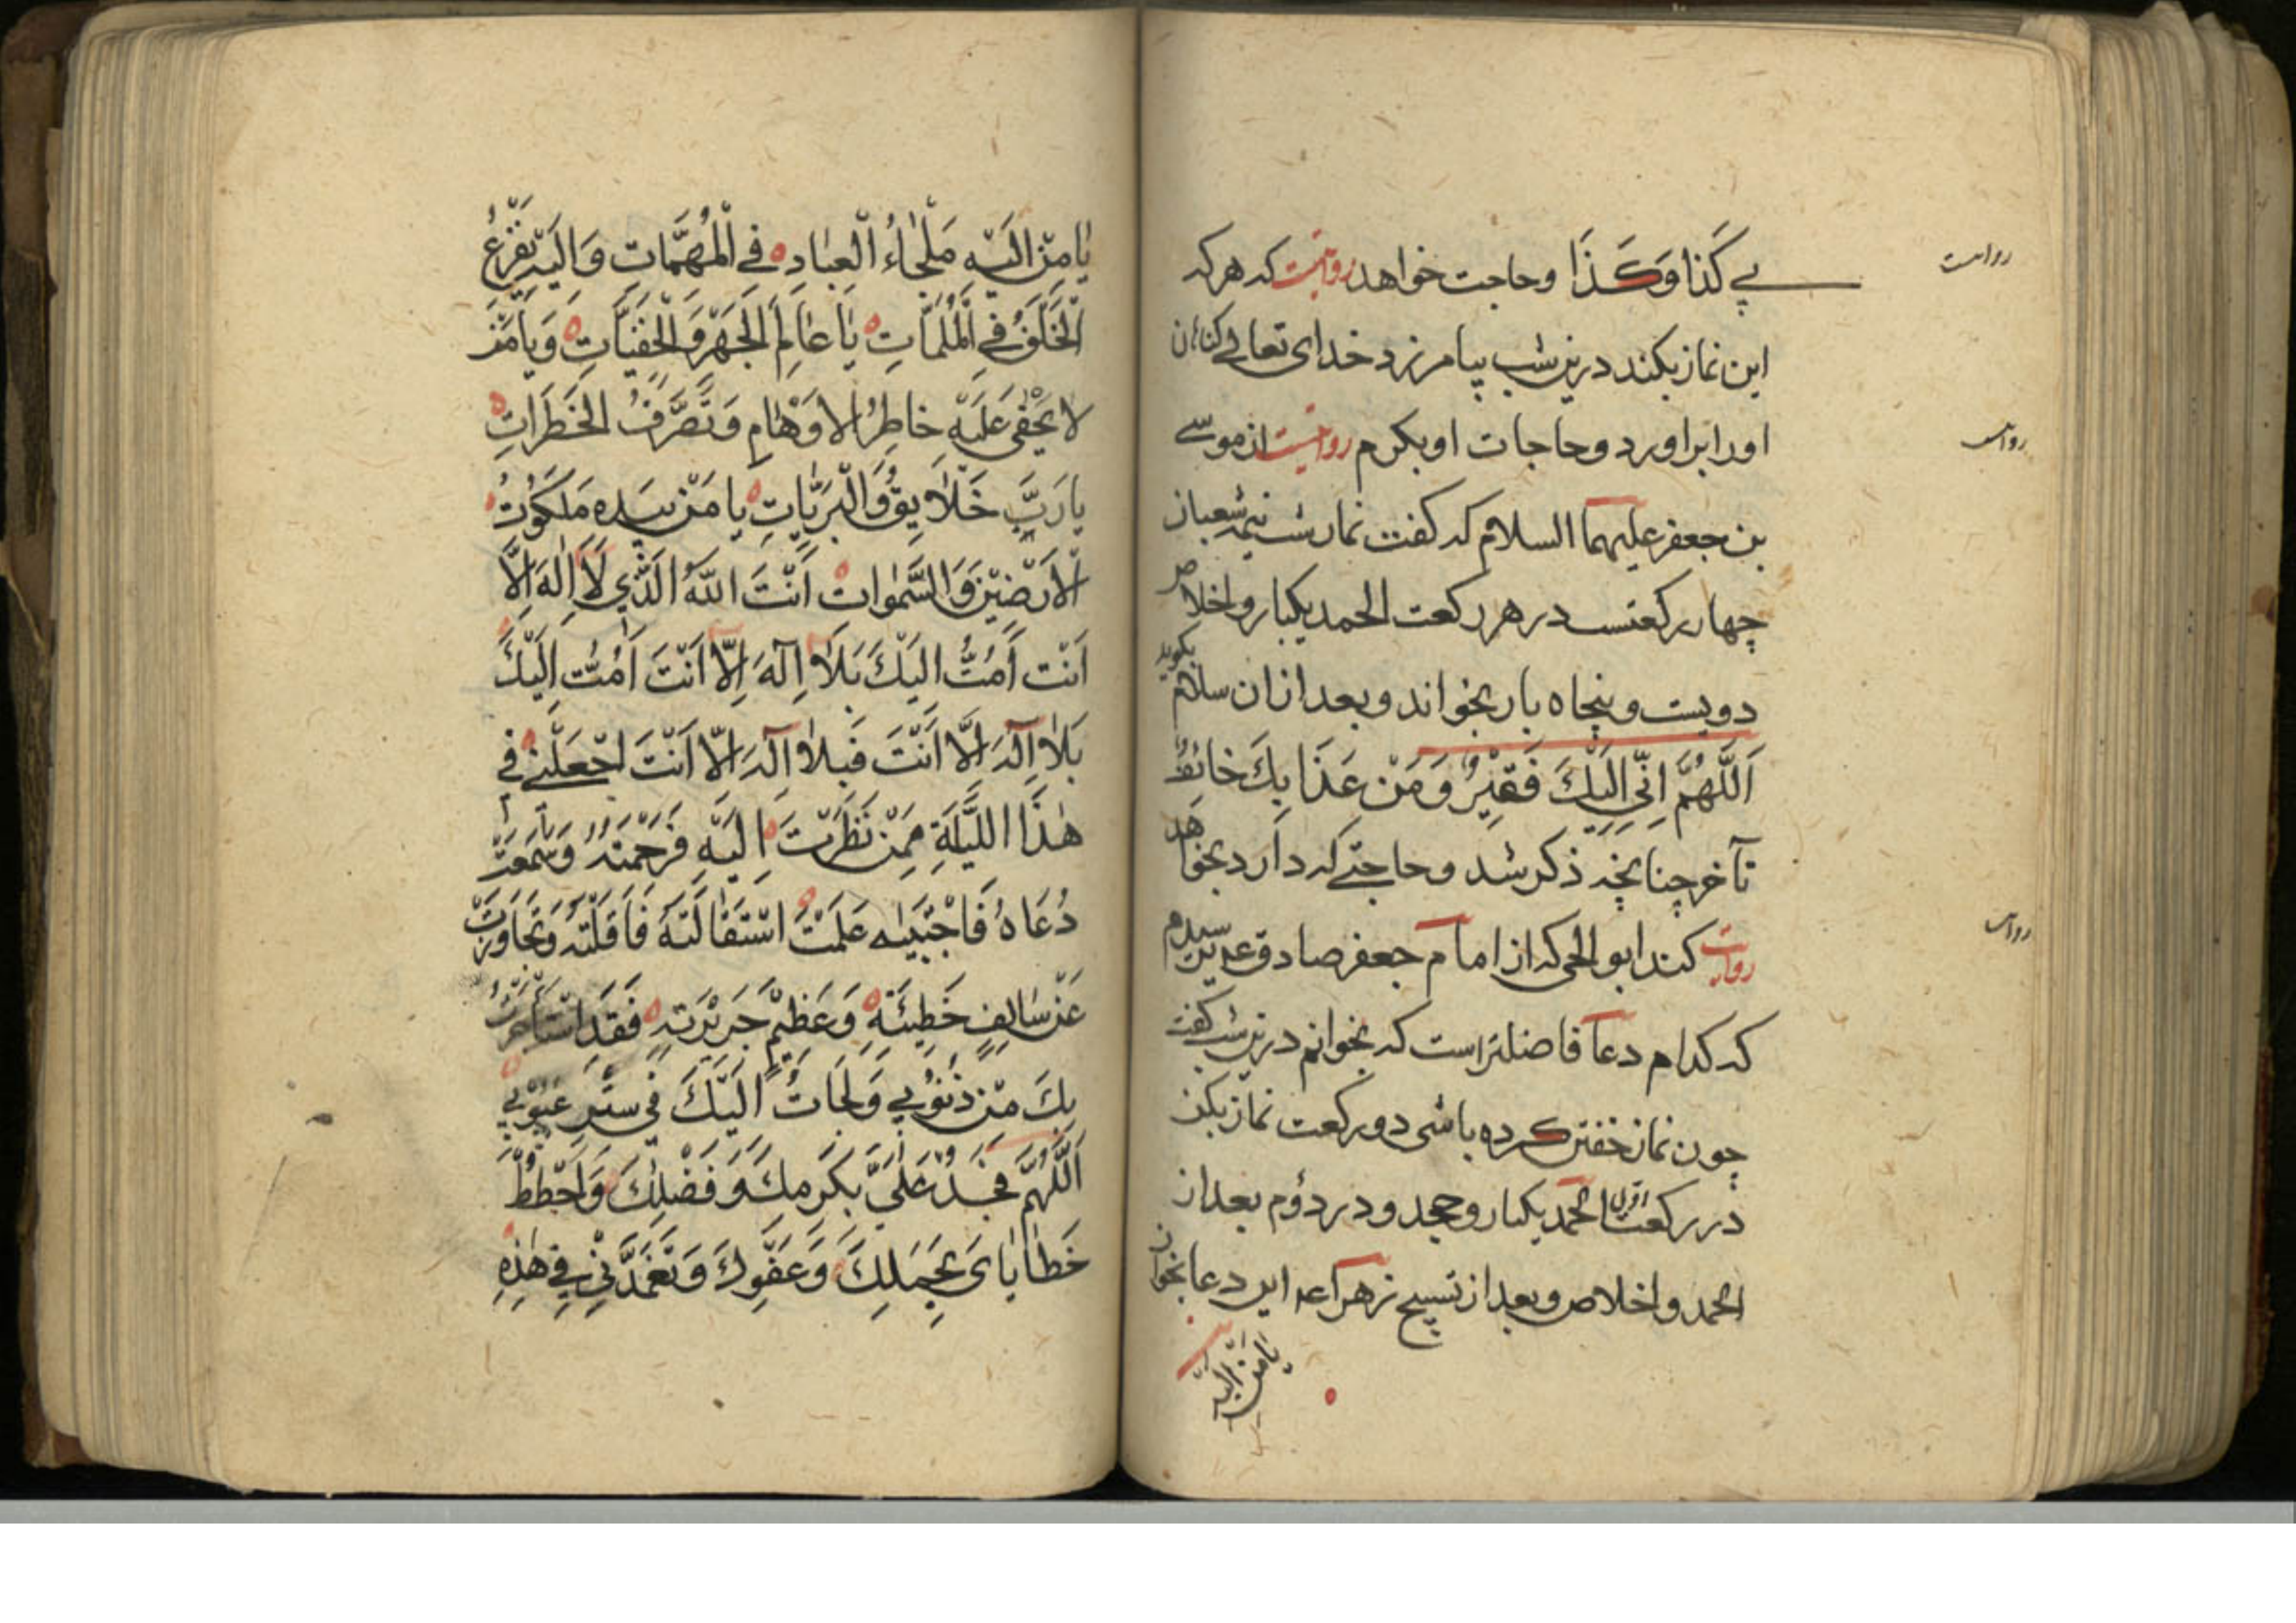 بي كَذَا وَكَذَا وحاجت خواهد روایتست که هر که
روایت
این نماز بکند درین شب بیامرزد خدای تعالی کناهان
اورا براورد وحاجات او بکرم روایتست از موسی
بن جعفر علیهما السلام که کفت نماز شب نیمه شعبان
چهار رکعتست در هر رکعت الحمد یکبار و اخلاص
دویست و پنجاه بار بخواند و بعد ازان سلام بکوید
اَللَّهُمَّ اِنِّي اِلَيْكَ فَقِيرٌ وَمِنْ عَذَابِكَ خَائِفٌ
تا آخر چنانچه ذکر شد و حاجتی که دارد بخواهد
روایت کند ابو یحیی که از امام جعفر صادق عم پرسیدم
که کدام دعا فاضلتر است که بخوانم درین شب کفت
چون نماز خفتن کرده باشی دو رکعت نماز بکن
در رکعت اول الحمد یکبار و جحد و در دوم بعد از
الحمد و اخلاص و بعد از تسبیح زهرا عم این دعا بخوان
يَا مَنْ اِلَيْهِ
يَا مَنْ اِلَيْهِ مَلْجَاءُ الْعِبَادِ فِي الْمُهِمَّاتِ وَاِلَيْهِ يَفْزَعُ
الْخَلْقُ فِي الْمُلِمَّاتِ يَا عَالِمَ الْجَهْرِ وَالْخَفِيَّاتِ وَيَا مَنْ
لا يَخْفَى عَلَيْهِ خَاطِرُ الاَوْهَامِ وَتَصَرُّفُ الْخَطَرَاتِ
يَا رَبَّ خَلايِقِ وَالْبَرِيَّاتِ يَا مَنْ بِيَدِهِ مَلَكُوتُ
الاَرَضِينَ وَالسَّمٰوَاتِ اَنْتَ اللهُ الَّذِي لا اِلٰهَ اِلَّا
اَنْتَ اَمُتُّ اِلَيْكَ بِلا اِلٰهَ اِلَّا اَنْتَ اَمُتُّ اِلَيْكَ
بِلا اِلٰهَ اِلَّا اَنْتَ فَبِلا اِلٰهَ اِلَّا اَنْتَ اجْعَلْنِي فِي
هٰذَا اللَّيْلَةِ مِمَّنْ نَظَرْتَ اِلَيْهِ فَرَحِمْتَهُ وَسَمِعْتَ
دُعَاهُ فَاَجَبْتَهُ عَلِمْتَ اسْتِقَالَتَهُ فَاَقَلْتَهُ وَتَجَاوَزْتَ
عَنْ سَالِفِ خَطِيئَتِهِ وَعَظِيمِ جَرِيرَتِهِ فَقَدِ اسْتَجَرْتُ
بِكَ مِنْ ذُنُوبِي وَلَجَاتُ اِلَيْكَ فِي سَتْرِ عُيُوبِي
اَللَّهُمَّ فَجُدْ عَلَيَّ بِكَرَمِكَ وَفَضْلِكَ وَاحْطُطْ
خَطَايَايَ بِحِمْلِكَ وَعَفْوِكَ وَتَغَمَّدْنِي فِي هٰذِهِ